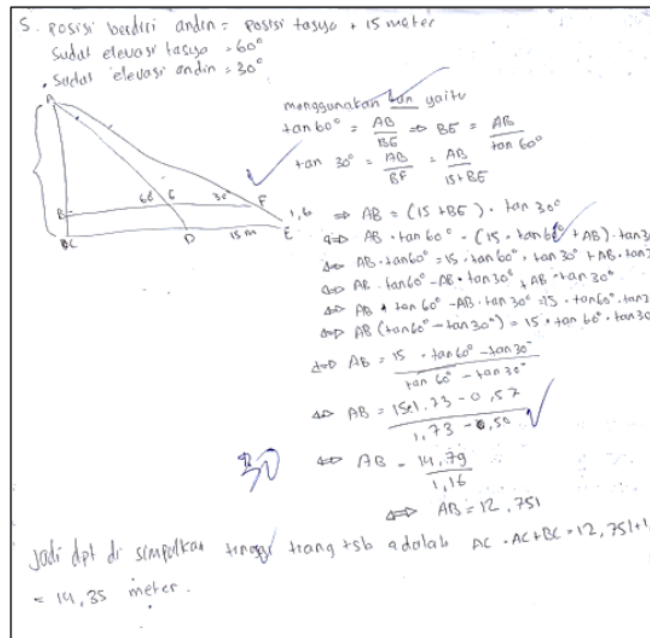 5. Posisi berdiri andin = Posisi tasya + 15 meter
Sudat elevasi tasya = 60°
Sudat elevasi andin = 30°
A
menggunakan tan yaitu
tan 60° = AB/BE ⇒ BE = AB/tan 60°
tan 30° = AB/BF = AB/15+BE
60 30°
B F 1,6
C D 15 m E
⇒ AB = (15 + BE) . tan 30°
⇔ AB . tan 60° = (15 . tan 60° + AB) . tan 3
⇔ AB . tan 60° = 15 . tan 60° . tan 30° + AB . tan
⇔ AB . tan 60° - AB . tan 30° + AB - tan 30°
⇔ AB . tan 60° - AB . tan 30° = 15 . tan 60° . tan
⇔ AB (tan 60° - tan 30°) = 15 . tan 60° . tan 30
⇔ AB = 15 . tan 60° - tan 30°/tan 60° - tan 30°
⇔ AB = 15.1,73 - 0,57/1,73 - 0,50
30
⇔ AB = 14,79/1,16
⇔ AB = 12,751
Jadi dpt di simpulkan tinggi tiang tsb adalah AC = AC + BC = 12,751 + 1
= 14,35 meter.